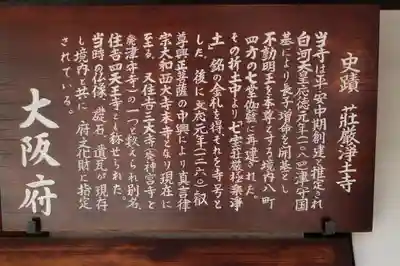 史蹟 荘厳浄土寺
当寺は平安中期創建と推定され
白河天皇応徳元年(一〇八四)津守国
基により長子増命を開基とし
不動明王を本尊とする境内八町
四方の七堂伽藍に再建された。
その折土中より「七宝荘厳極楽浄
土」銘の金札を得それを寺号と
した。後に文応元年(一二六〇)叡
尊興正菩薩の中興により真言律
宗大和西大寺末寺となり現在に
至る。又住吉三大寺(神宮寺と
津守寺)の一つと数えられ別名、
住吉四天王寺とも称せられた。
当時の仏像、礎石、道具が現存
し境内と共に府文化財に指定
されている。
大阪府